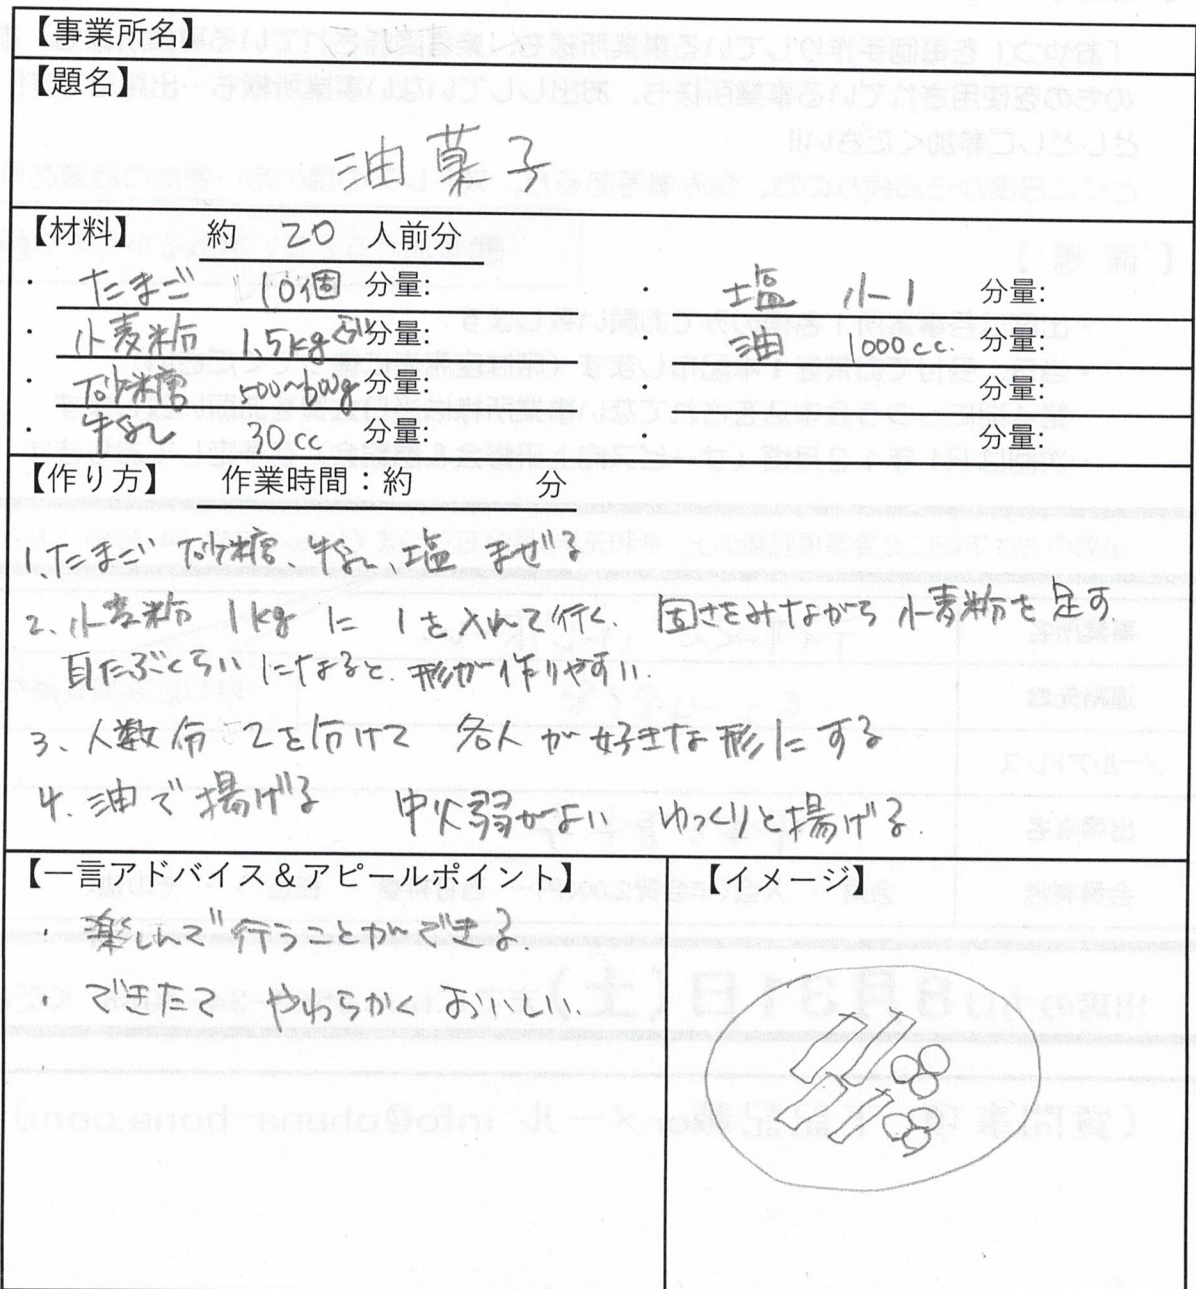 【事業所名】
【題名】
油菓子
【材料】 約 20 人前分
・ たまご 10個 分量:
・ 小麦粉 1.5kgぐらい 分量:
・ 砂糖 500〜600g 分量:
・ 牛乳 30cc 分量:
・ 塩 小-1 分量:
・ 油 1000cc. 分量:
・ 分量:
・ 分量:
【作り方】 作業時間：約 分
1、たまご 砂糖 牛乳、塩 まぜる
2、小麦粉 1kgに 1を入れて行く、固さをみながら 小麦粉を足す
耳たぶくらいになると、形が作りやすい
3、人数分 2を分けて 各人が好きな形にする
4、油で揚げる 中火弱がよい ゆっくりと揚げる.
【一言アドバイス＆アピールポイント】
・ 楽しんで行うことができる.
・ できたて やわらかく おいしい
【イメージ】